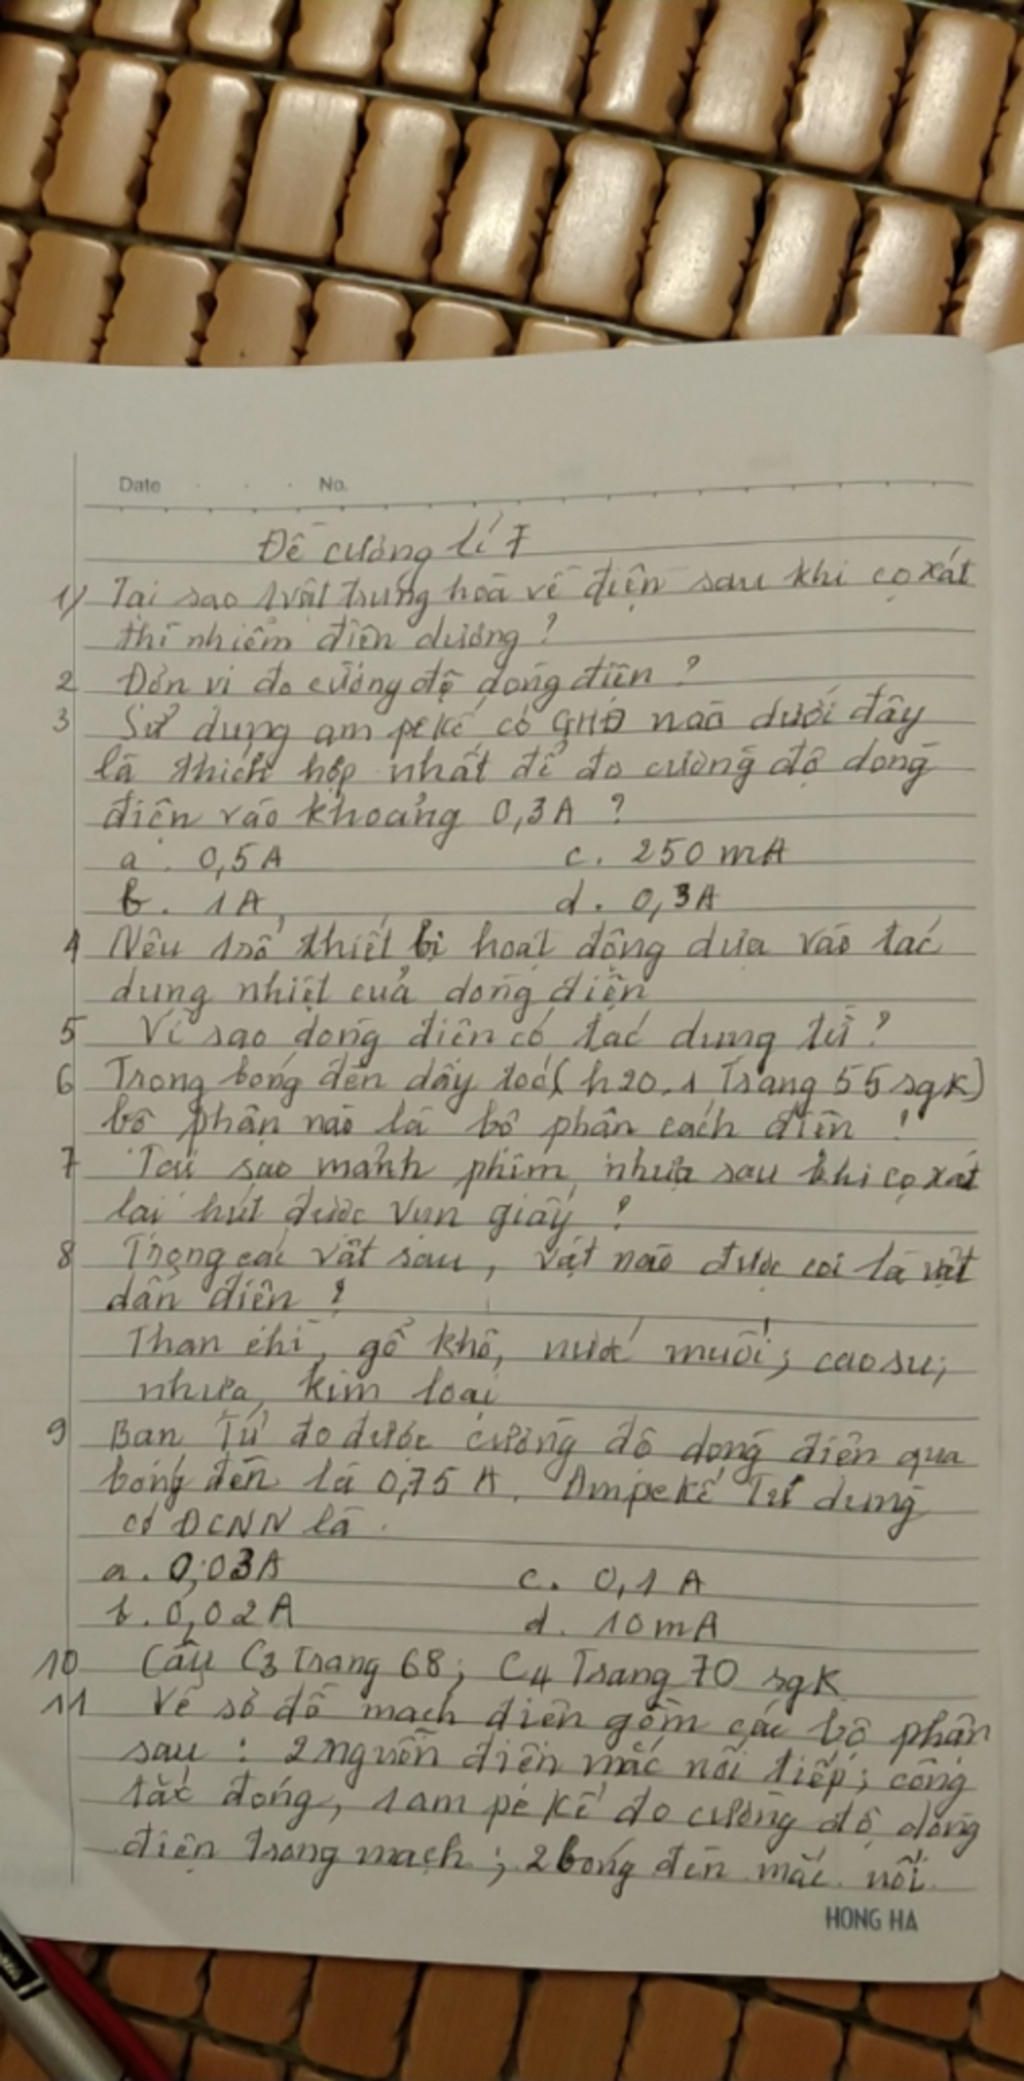 Date No.
Đề cương lí 7
1) Tại sao 1 vật trung hoà về điện sau khi cọ xát
thì nhiễm điện dương?
2 Đơn vị đo cường độ dòng điện?
3 Sử dụng ampekế có GHĐ nào dưới đây
là thích hợp nhất để đo cường độ dòng
điện vào khoảng 0,3A?
a. 0,5A c. 250mA
b. 1A d. 0,3A
4 Nêu 1 số thiết bị hoạt động dựa vào tác
dụng nhiệt của dòng điện
5 Vì sao dòng điện có tác dụng từ?
6 Trong bóng đèn dây tóc (h20.1 Trang 55 sgk)
bộ phận nào là bộ phận cách điện?
7 Tại sao mảnh phim nhựa sau khi cọ xát
lại hút được vụn giấy?
8 Trong các vật sau, vật nào được coi là vật
dẫn điện?
Than chì, gỗ khô, nước muối; cao su;
nhựa, kim loại
9 Bạn Tú đo được cường độ dòng điện qua
bóng đèn là 0,75A. Ampe kế Tú dùng
có ĐCNN là.
a. 0,03A c. 0,1A
b. 0,02A d. 10mA
10 Câu C3 Trang 68; C4 Trang 70 sgk
11 Vẽ sơ đồ mạch điện gồm các bộ phận
sau: 2 nguồn điện mắc nối tiếp; công
tắc đóng, 1 am pe kế đo cường độ dòng
điện trong mạch; 2 bóng đèn mắc nối.
HONG HA